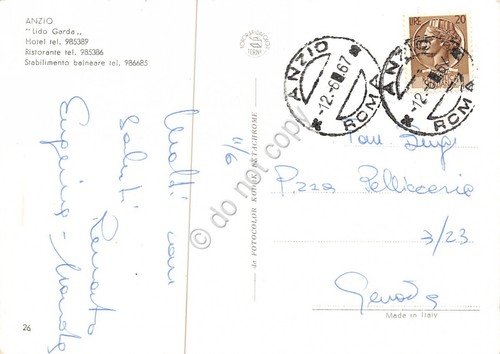 ANZIO
"Lido Garda„
Hotel tel. 985389
Ristorante tel. 985386
Stabilimento balneare tel. 986685
LIRE 20
ANZIO
-12.-6 67
ROMA
ANZIO
-12.-6 67
ROMA
11/6
Molti cari
saluti Renato
Eugenia -
P.zza Pelliccerie
3/23
Genova
de FOTOCOLOR KODAK EKTACHROME
Made in Italy
26
© do not copy